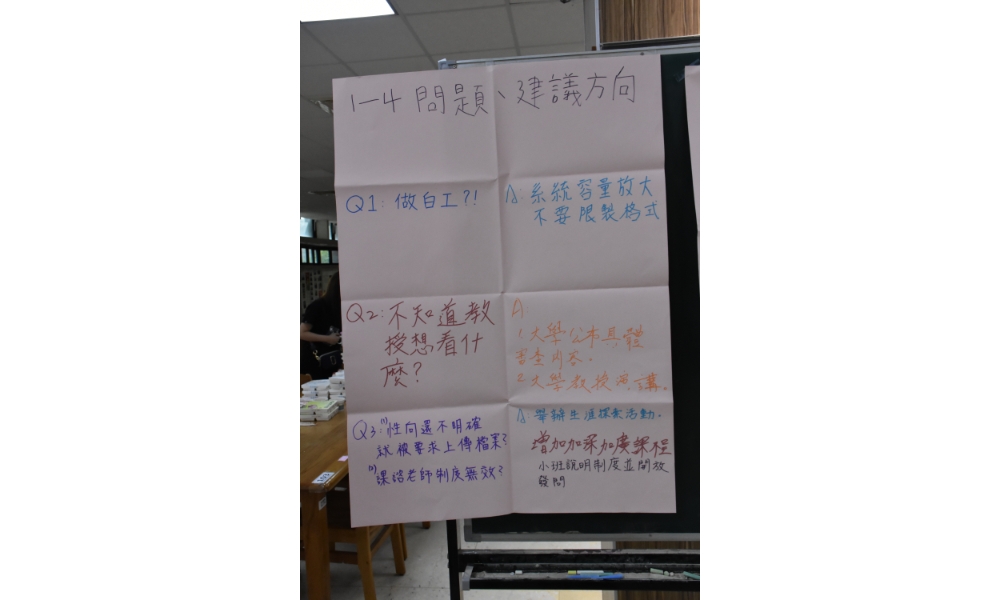 1-4 問題、建議方向
Q1: 做白工?!
A: 系統容量放大
不要限製格式
Q2: 不知道教
授想看什
麼?
A:
1. 大學公布具體
審查內容.
2. 大學教授演講.
Q3: (1) 性向還不明確
就被要求上傳檔案?
(2) 課諮老師制度無效?
A: 舉辦生涯探索活動.
增加加深加廣課程
小班說明制度並開放
發問